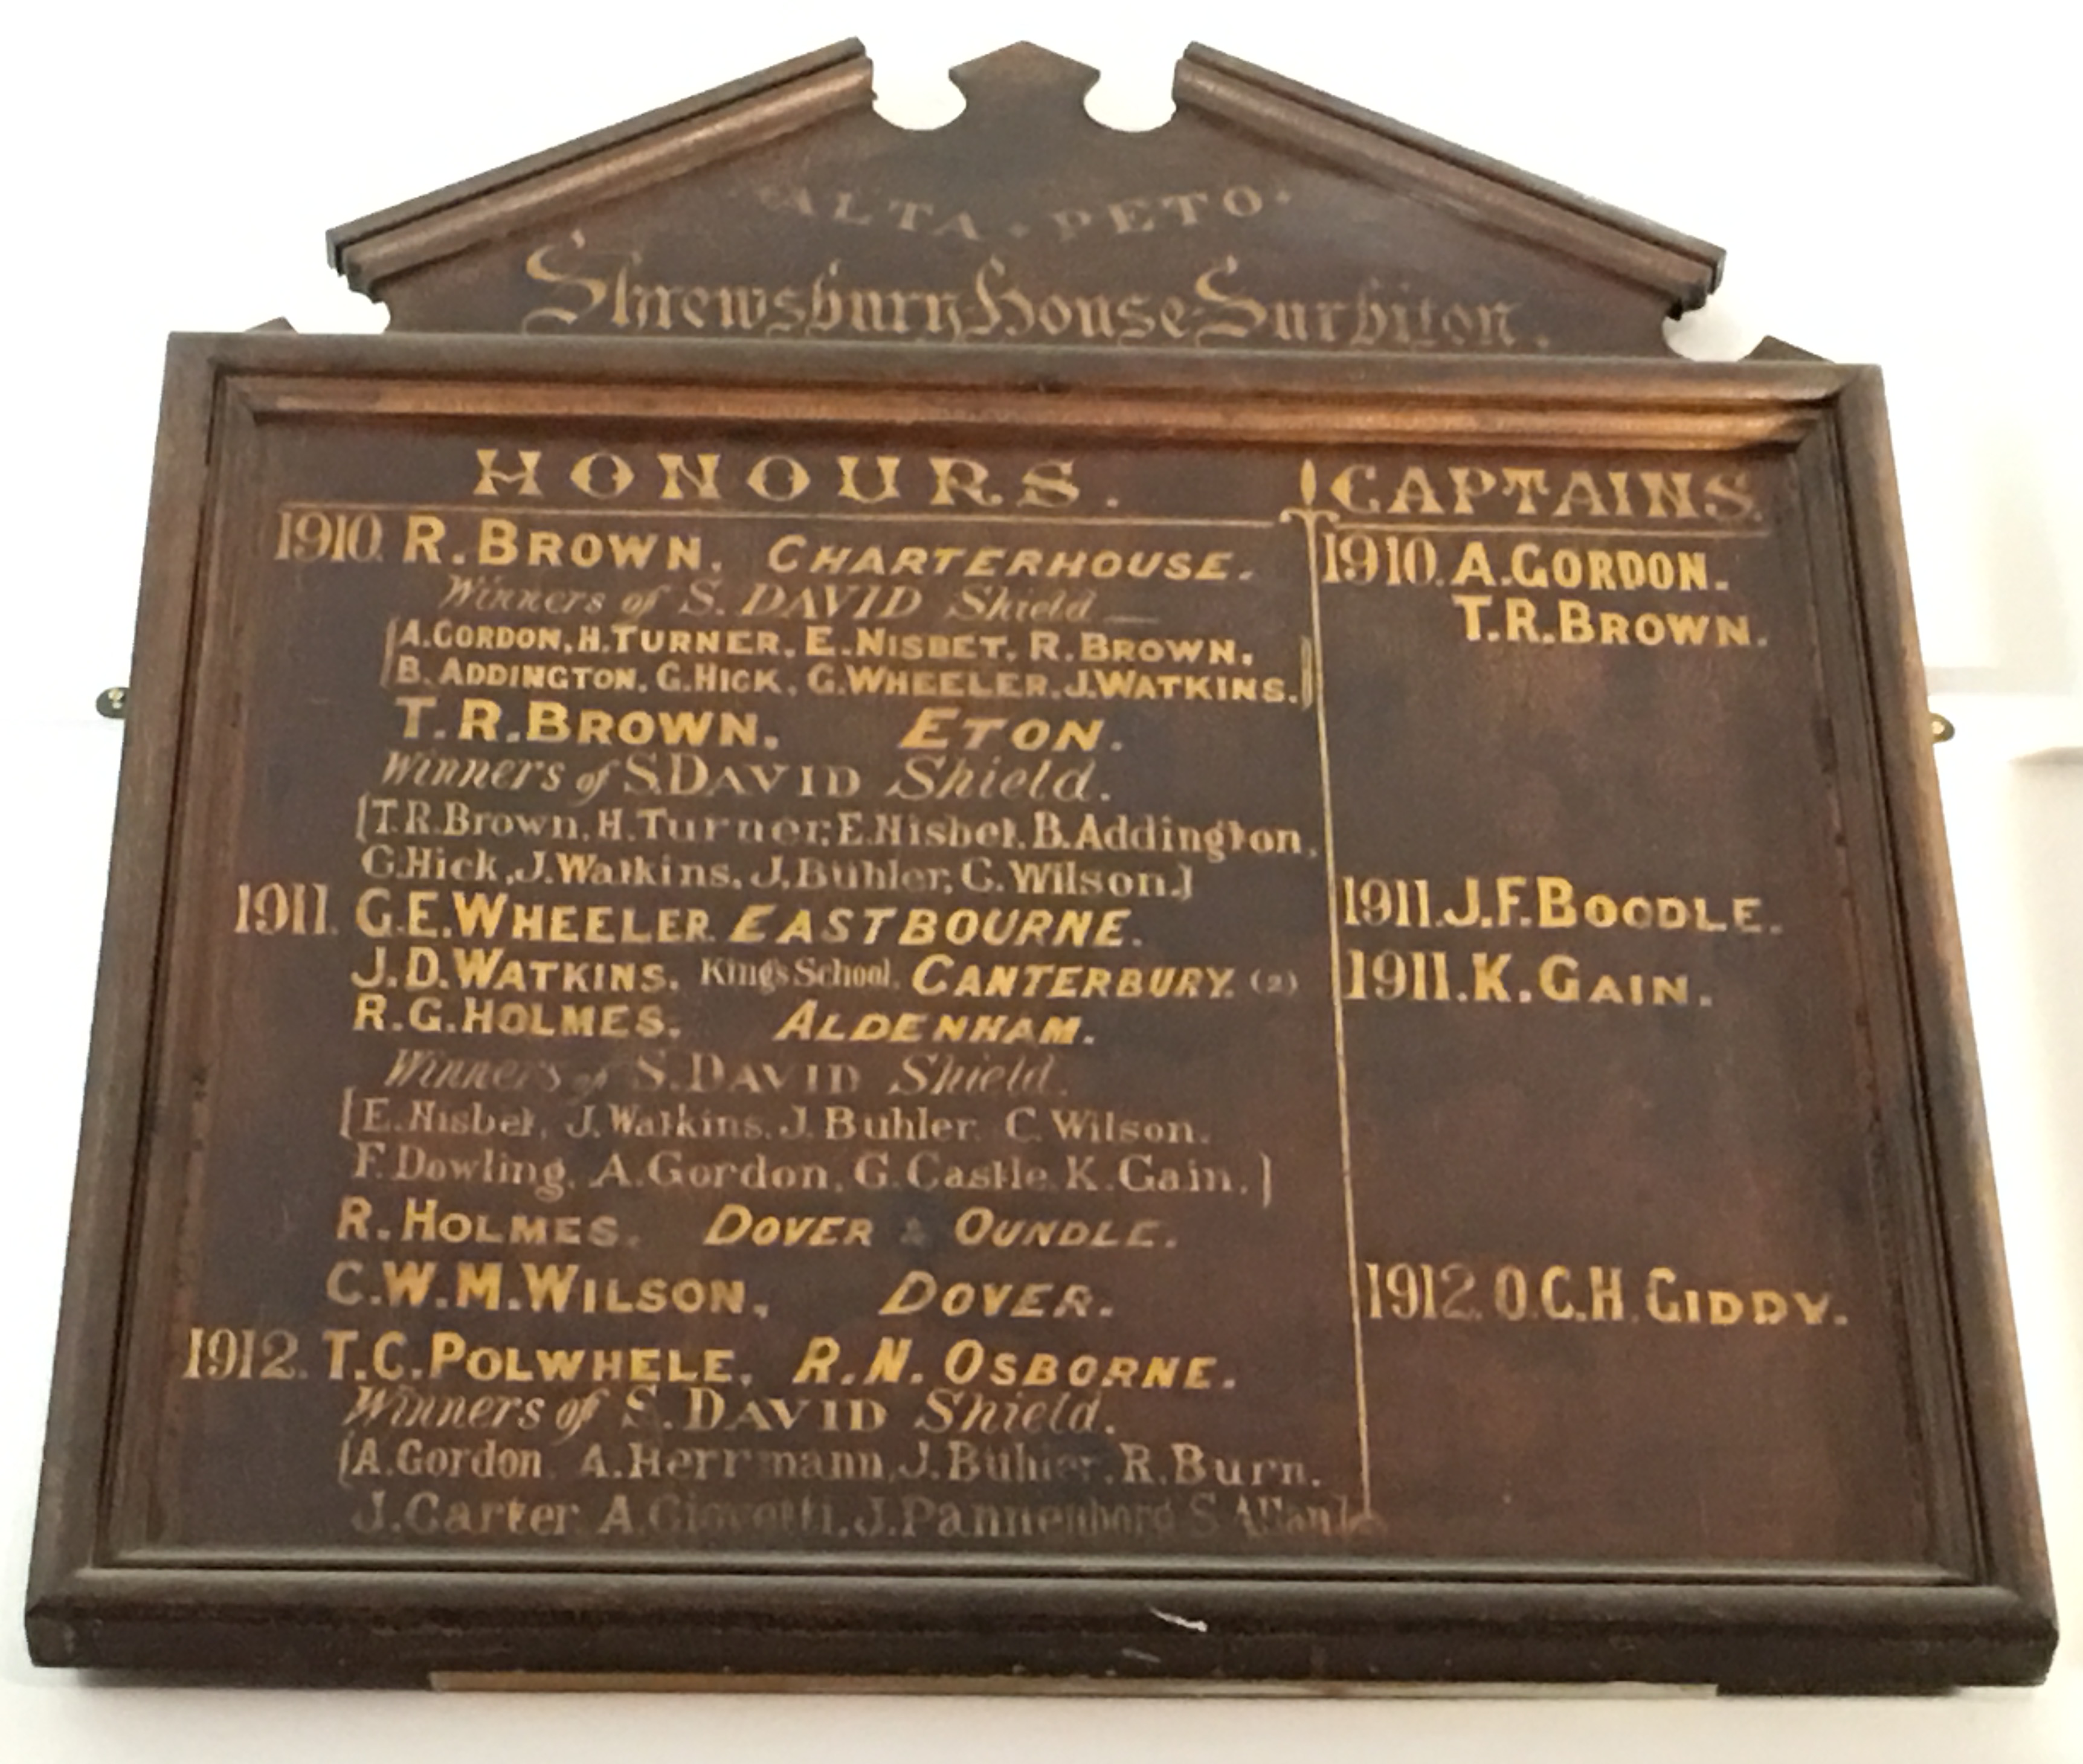 ALTA · PETO ·
Shrewsbury House · Surbiton.
HONOURS.
1910. R. BROWN. CHARTERHOUSE.
Winners of S. DAVID Shield —
[A. GORDON, H. TURNER, E. NISBET, R. BROWN.
B. ADDINGTON, G. HICK, G. WHEELER, J. WATKINS.]
T. R. BROWN. ETON.
Winners of S. DAVID Shield.
[T. R. Brown, H. Turner, E. Nisbet, B. Addington,
G. Hick, J. Watkins, J. Buhler, C. Wilson.]
1911. G. E. WHEELER. EASTBOURNE.
J. D. WATKINS. King's School. CANTERBURY. (2)
R. G. HOLMES. ALDENHAM.
Winners of S. DAVID Shield.
[E. Nisbet, J. Watkins, J. Buhler, C. Wilson.
F. Dowling, A. Gordon, G. Castle, K. Gain.]
R. HOLMES. DOVER & OUNDLE.
C. W. M. WILSON, DOVER.
1912. T. C. POLWHELE. R. N. OSBORNE.
Winners of S. DAVID Shield.
[A. Gordon, A. Herrmann, J. Buhler, R. Burn.
J. Carter A. J. Pannenborg S.
CAPTAINS.
1910. A. GORDON.
T. R. BROWN.
1911. J. F. BOODLE.
1911. K. GAIN.
1912. O. C. H. GIDDY.